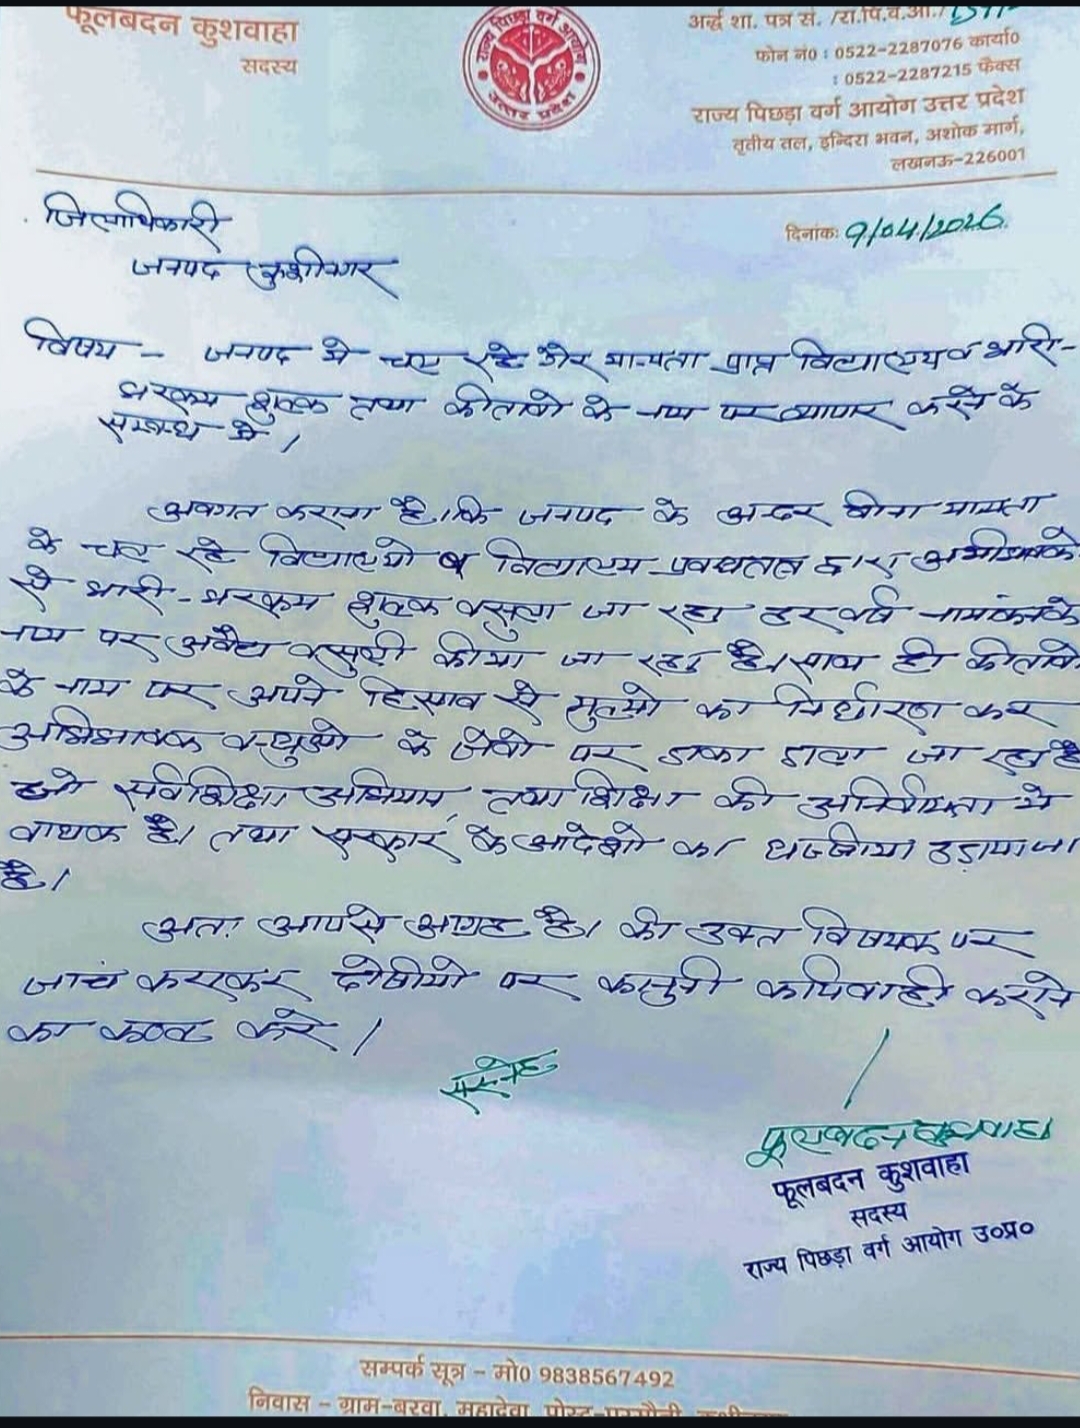 फूलबदन कुशवाहा
सदस्य
राज्य पिछड़ा वर्ग आयोग
उत्तर प्रदेश
अर्द्ध शा. पत्र सं. /रा.पि.व.आ./
फोन नं0 : 0522-2287076 कार्या0
: 0522-2287215 फैक्स
राज्य पिछड़ा वर्ग आयोग उत्तर प्रदेश
तृतीय तल, इन्दिरा भवन, अशोक मार्ग,
लखनऊ-226001
दिनांक: 9/04/2026
जिलाधिकारी
जनपद कुशीनगर
विषय - जनपद मे चल रहे गैर मान्यता प्राप्त विद्यालय व भारी-
भरकम शुल्क तथा कीताबो के नाम पर व्यापार करने के
सम्बन्ध मे।
अवगत कराना है। कि जनपद के अन्दर बीना मान्यता
के चल रहे विद्यालयो व विद्यालय प्रबन्धतन्त्र द्वारा
से भारी-भरकम शुल्क वसुला जा रहा हर वर्ष नामांकन के
नाम पर अवैध वसुली कीया जा रहा है। साथ ही कीताबो
के नाम पर अपने हिसाब से मुल्यो का निर्धारण कर
अभिभावक बन्धुओ के जेबो पर डाका डाला जा रहा है
जो सर्वशिक्षा अभियान, तथा शिक्षा की अनिवार्यता मे
बाधक है। तथा सरकार के आदेशो का धज्जीया उड़ाया जा
है।
अतः आपसे आग्रह है। की उक्त विषयक पर
जांच कराकर दोषीयो पर कानुनी कार्यवाही कराने
का कष्ट करे।
सस्नेह
फूलबदन कुशवाहा
फूलबदन कुशवाहा
सदस्य
राज्य पिछड़ा वर्ग आयोग उ०प्र०
सम्पर्क सूत्र - मो0 9838567492
निवास - ग्राम-बरवा, महादेवा, पोस्ट-